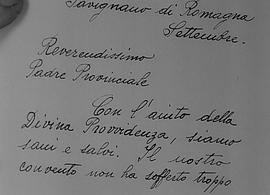 Savignano di Romagna
Settembre.
Reverendissimo
Padre Provinciale
Con l'aiuto della
Divina Provvidenza, siamo
sani e salvi. Il nostro
convento non ha sofferto troppo